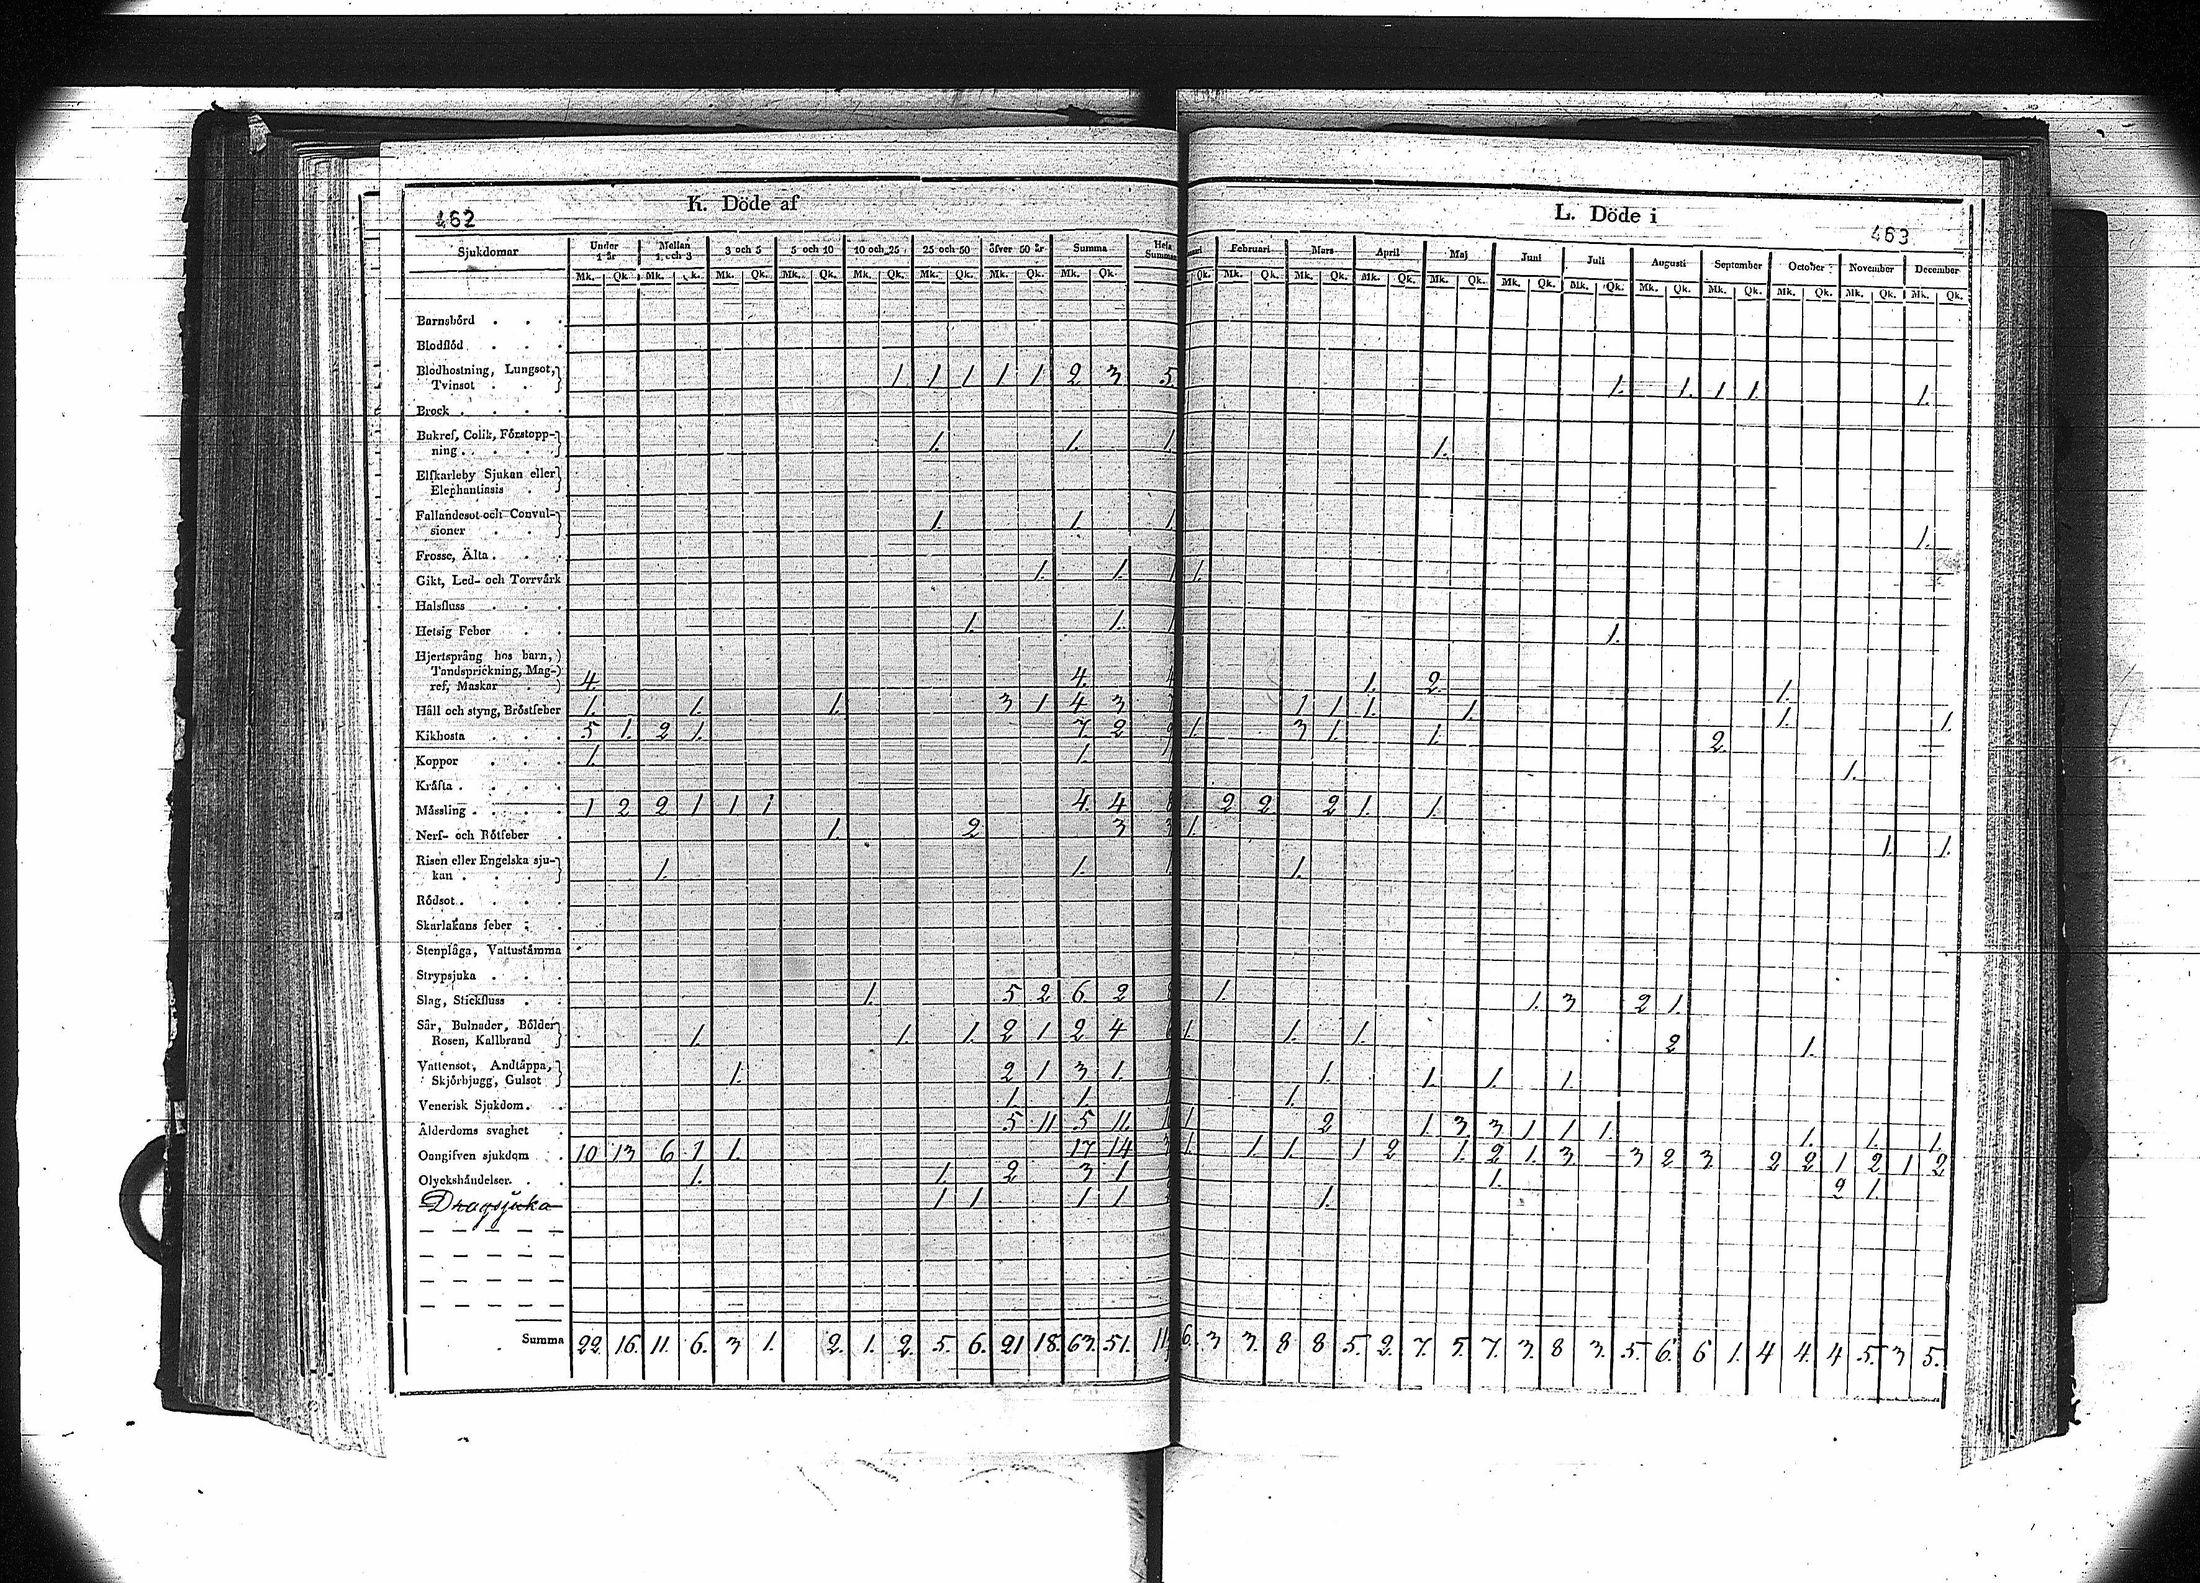 462
K. Döde af
Sjukdomar Under 1 år Mellan 1 och 3 3 och 5 5 och 10 10 och 25 25 och 50 öfver 50 år Summa Hela Summan
Mk. Qk. Mk. Qk. Mk. Qk. Mk. Qk. Mk. Qk. Mk. Qk. Mk. Qk. Mk. Qk.
Barnsbörd . . .
Blodflöd . . .
Blodhostning, Lungsot,
Tvinsot . . 1 1 1 1 1 2 3 5.
Brock . . . .
Bukref, Colik, Förstopp-
ning . . . . 1. 1. 1.
Elfkarleby Sjukan eller
Elephantiasis .
Fallandesot och Convul-
sioner . . 1. 1. 1
Frosse, Älta . . .
Gikt, Led- och Torrvärk 1. 1. 1
Halsfluss . . .
Hetsig Feber . . 1. 1. 1
Hjertsprång hos barn,
Tandsprickning, Mag-
ref, Maskar . 4. 4. 4
Håll och styng, Bröstfeber 1. 1. 1. 3 1 4 3 7
Kikhosta . . . 5 1. 2 1. 7 2 9
Koppor . . . 1. 1. 1
Kräfta . . . .
Mässling . . . . 1 2 2 1 1 1 4. 4
Nerf- och Rötfeber . 1. 2 3 3
Risen eller Engelska sju-
kan . . . . 1. 1. 1
Rödsot . . . .
Skarlakans feber . .
Stenplåga, Vattustämma
Strypsjuka . . .
Slag, Stickfluss . . 1. 5 2 6 2 8
Sår, Bulnader, Bölder
Rosen, Kallbrand 1. 1. 1. 2 1 2 4 6
Vattensot, Andtäppa,
Skjörbjugg, Gulsot 1. 2 1 3 1.
Venerisk Sjukdom . . 1. 1. 1
Ålderdoms svaghet . 5 11 5 11. 1
Oangifven sjukdom . 10 13 6 1 1. 17 14 3
Olyckshändelser. . . 1. 1 2 3 1
Dragsjuka 1 1 1 1
Summa 22. 16. 11. 6. 3 1. 2. 1. 2. 5. 6. 21 18. 63. 51. 11
463
L. Döde i
Februari Mars April Maj Juni Juli Augusti September October November December
Qk. Mk. Qk. Mk. Qk. Mk. Qk. Mk. Qk. Mk. Qk. Mk. Qk. Mk. Qk. Mk. Qk. Mk. Qk. Mk. Qk. Mk. Qk.
1. 1. 1 1. 1.
1.
1.
1.
1.
1. 2. 1.
1 1 1. 1. 1. 1.
1. 3 1. 1. 2.
1.
2 2 2 1. 1.
1. 1. 1.
1.
1. 1. 3 2 1.
1. 1. 1. 2 1.
1. 1. 1. 1.
1.
1 2 1 3 3 1 1 1. 1. 1. 1.
1. 1 1. 1 2 1. 2 1. 3 3 2 3 2 2 1 2 1 2
1. 2 1.
1.
6. 3 3. 8 8 5. 2. 7. 5. 7. 3. 8 3. 5. 6. 6 1. 4 4. 4 5. 3 5.